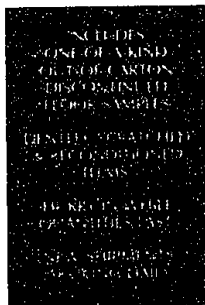 INCLUDES
ONE-OF-A-KIND
OUT-OF-CARTON
DISCONTINUED
FLOOR SAMPLES
DENTED, SCRATCHED
& RECONDITIONED
ITEMS
QUANTITIES LAST
NEW SHIPMENTS
ARRIVING DAILY